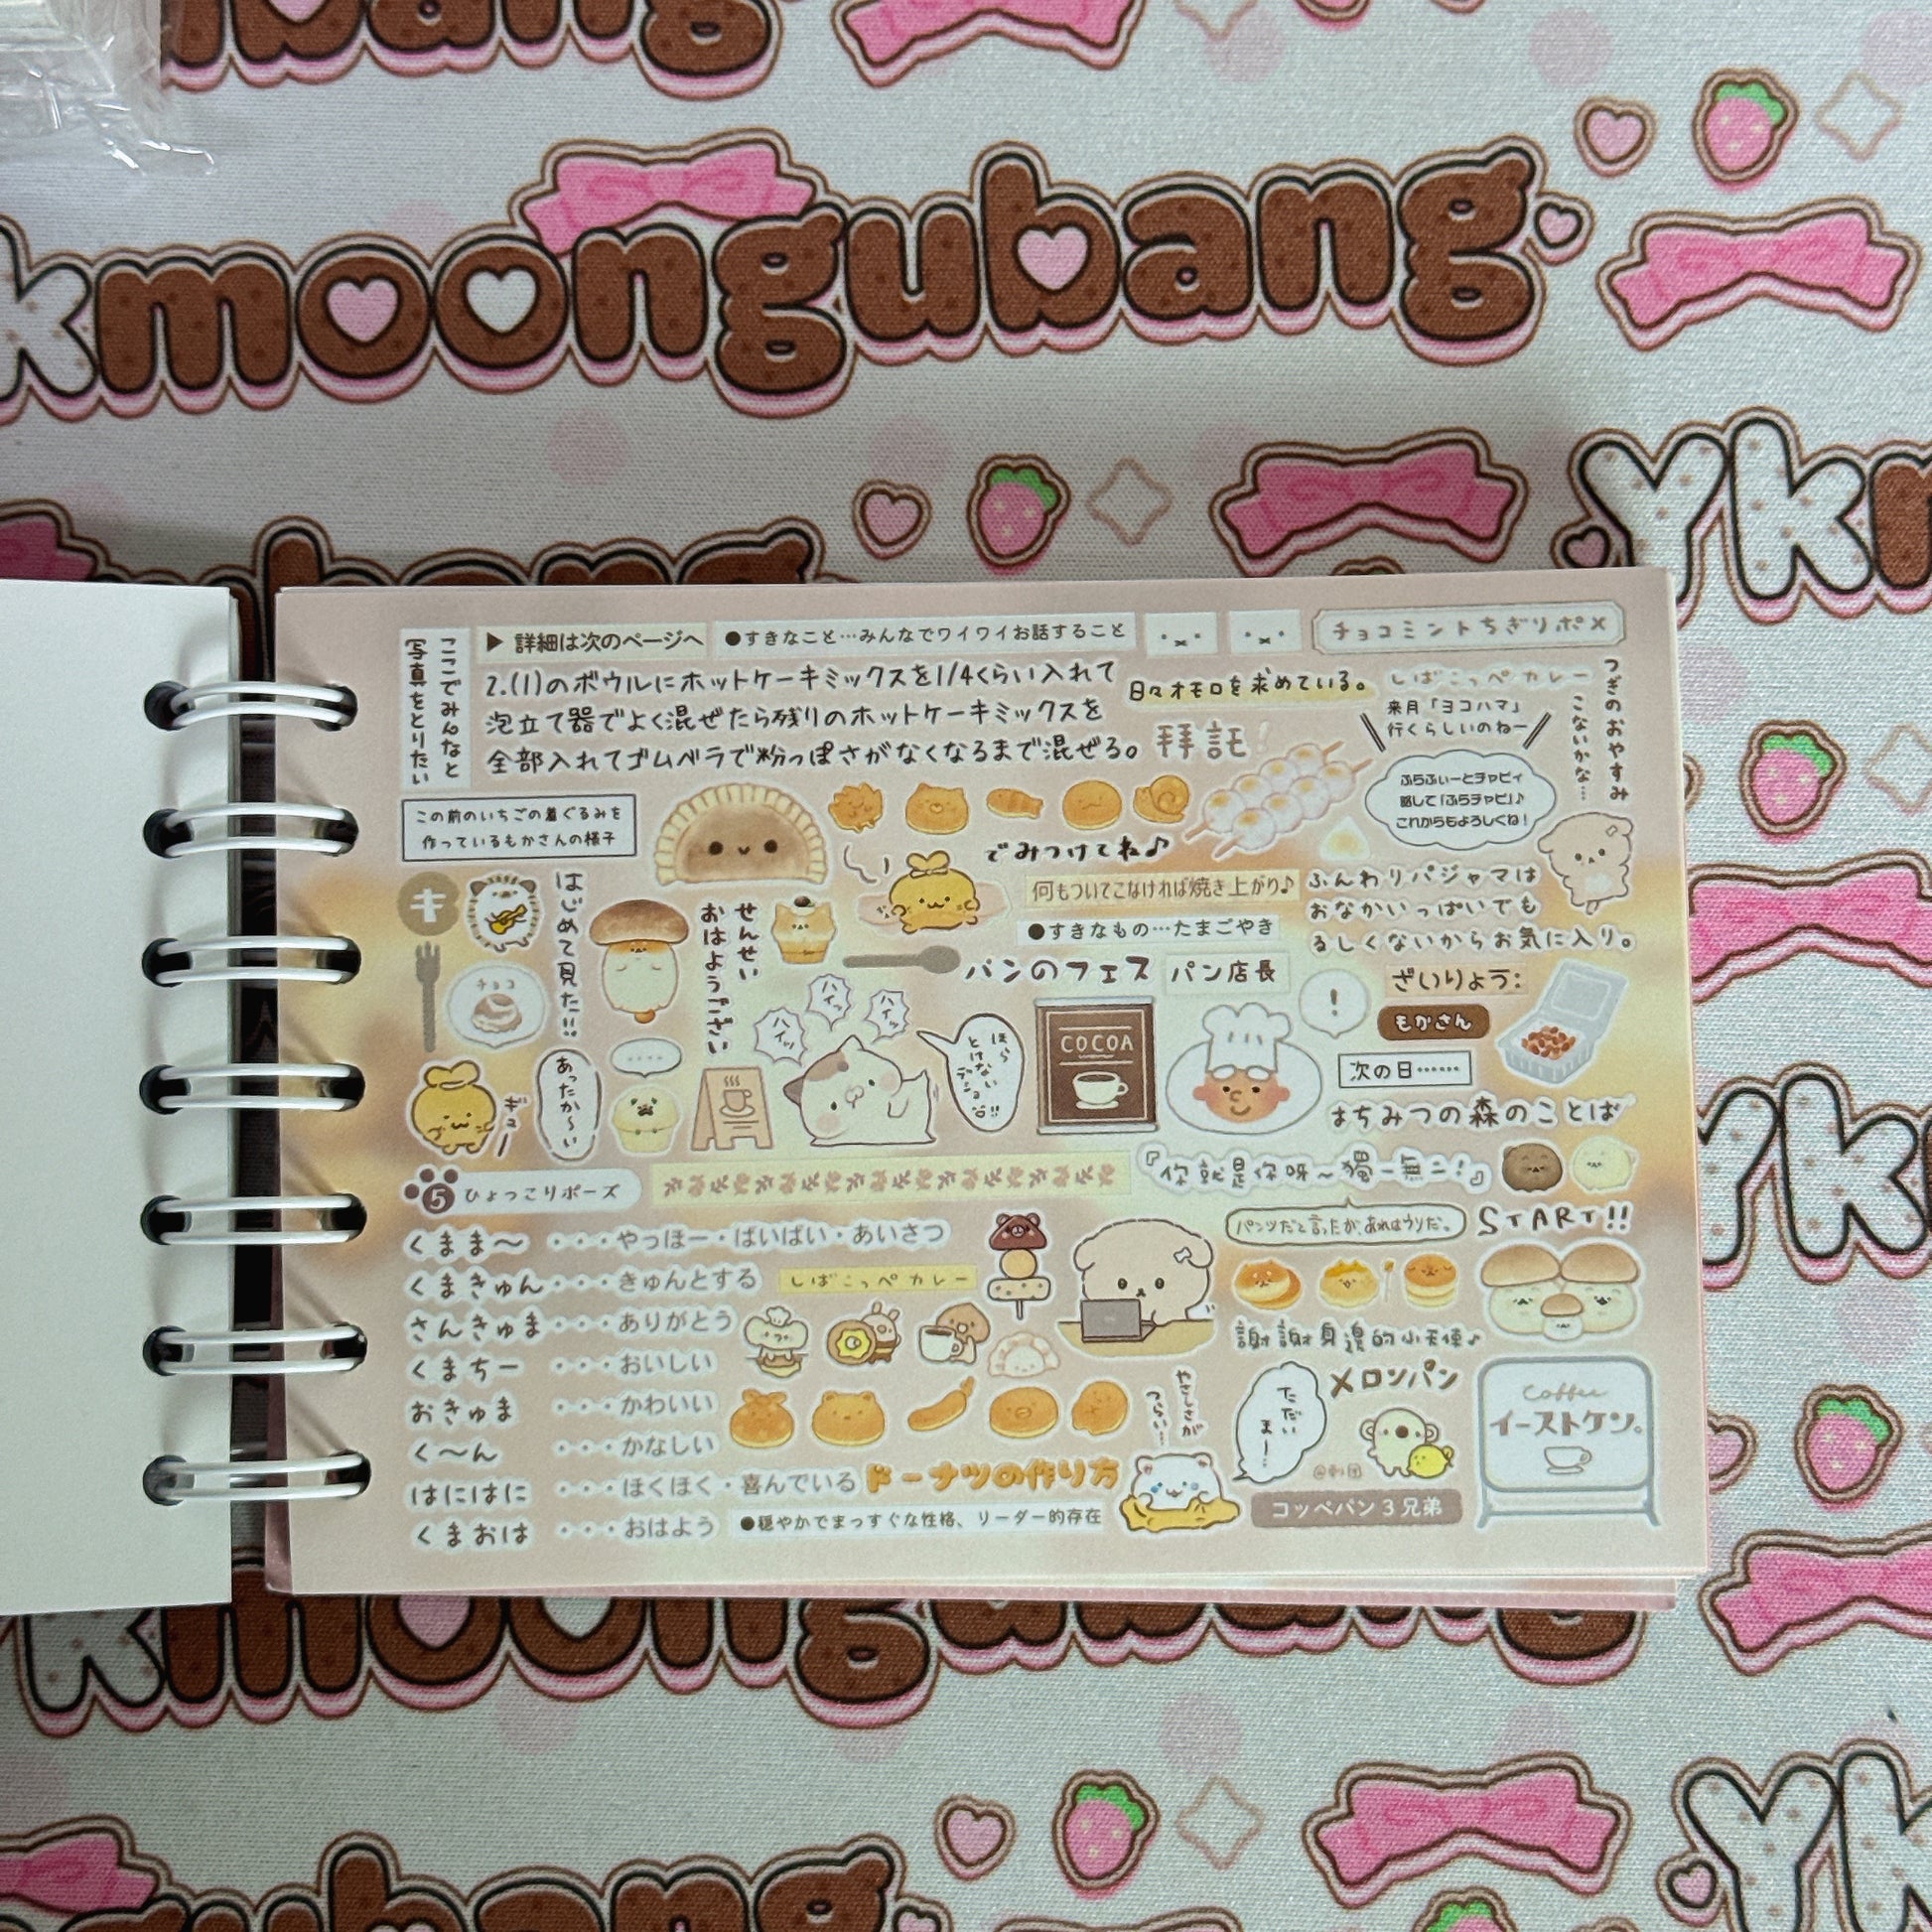 bang
ykmoongubang
Yk
ここでみんなと
写真をとりたい
▶ 詳細は次のページへ
●すきなこと…みんなでワイワイお話すること
チョコミントちぎりポメ
2.(1)のボウルにホットケーキミックスを1/4くらい入れて
泡立て器でよく混ぜたら残りのホットケーキミックスを
全部入れてゴムベラで粉っぽさがなくなるまで混ぜる。
日々オモロを求めている。
しばこっぺカレー
来月「ヨコハマ」
行くらしいのねー
つぎのおやすみ
こないかな…
拝託!
ふらふぃーとチャピィ
略して「ふらチャピ」♪
これからもよろしくね!
この前のいちごの着ぐるみを
作っているもかさんの様子
でみつけてね♪
何もついてこなければ焼き上がり♪
●すきなもの…たまごやき
ふんわりパジャマは
おなかいっぱいでも
るしくないからお気に入り。
キ
はじめて見た!!
せんせい
おはようござい
チョコ
パンのフェス
パン店長
ざいりょう:
もかさん
!
次の日……
はちみつの森のことば
ハイッ
ハイッ
ハイッ
ほら
とけない
COCOA
あったか〜い
ギュー
5 ひょっこりポーズ
『你就是你呀~獨一無二!』
パンツだと言ったが、あれはウソだ。
START!!
くまま〜 ・・・やっほー・ばいばい・あいさつ
くまきゅん・・・きゅんとする
しばこっぺカレー
さんきゅま・・・ありがとう
くまちー ・・・おいしい
おきゅま ・・・かわいい
く〜ん ・・・かなしい
はにはに ・・・ほくほく・喜んでいる
くまおは ・・・おはよう
謝謝身邊的小天使♪
ドーナツの作り方
●穏やかでまっすぐな性格、リーダー的存在
やさしさが
つらい…
ただい
まー…
メロンパン
コッペパン3兄弟
Coffee
イーストケン。
ykmoongubang
Yk
gubang